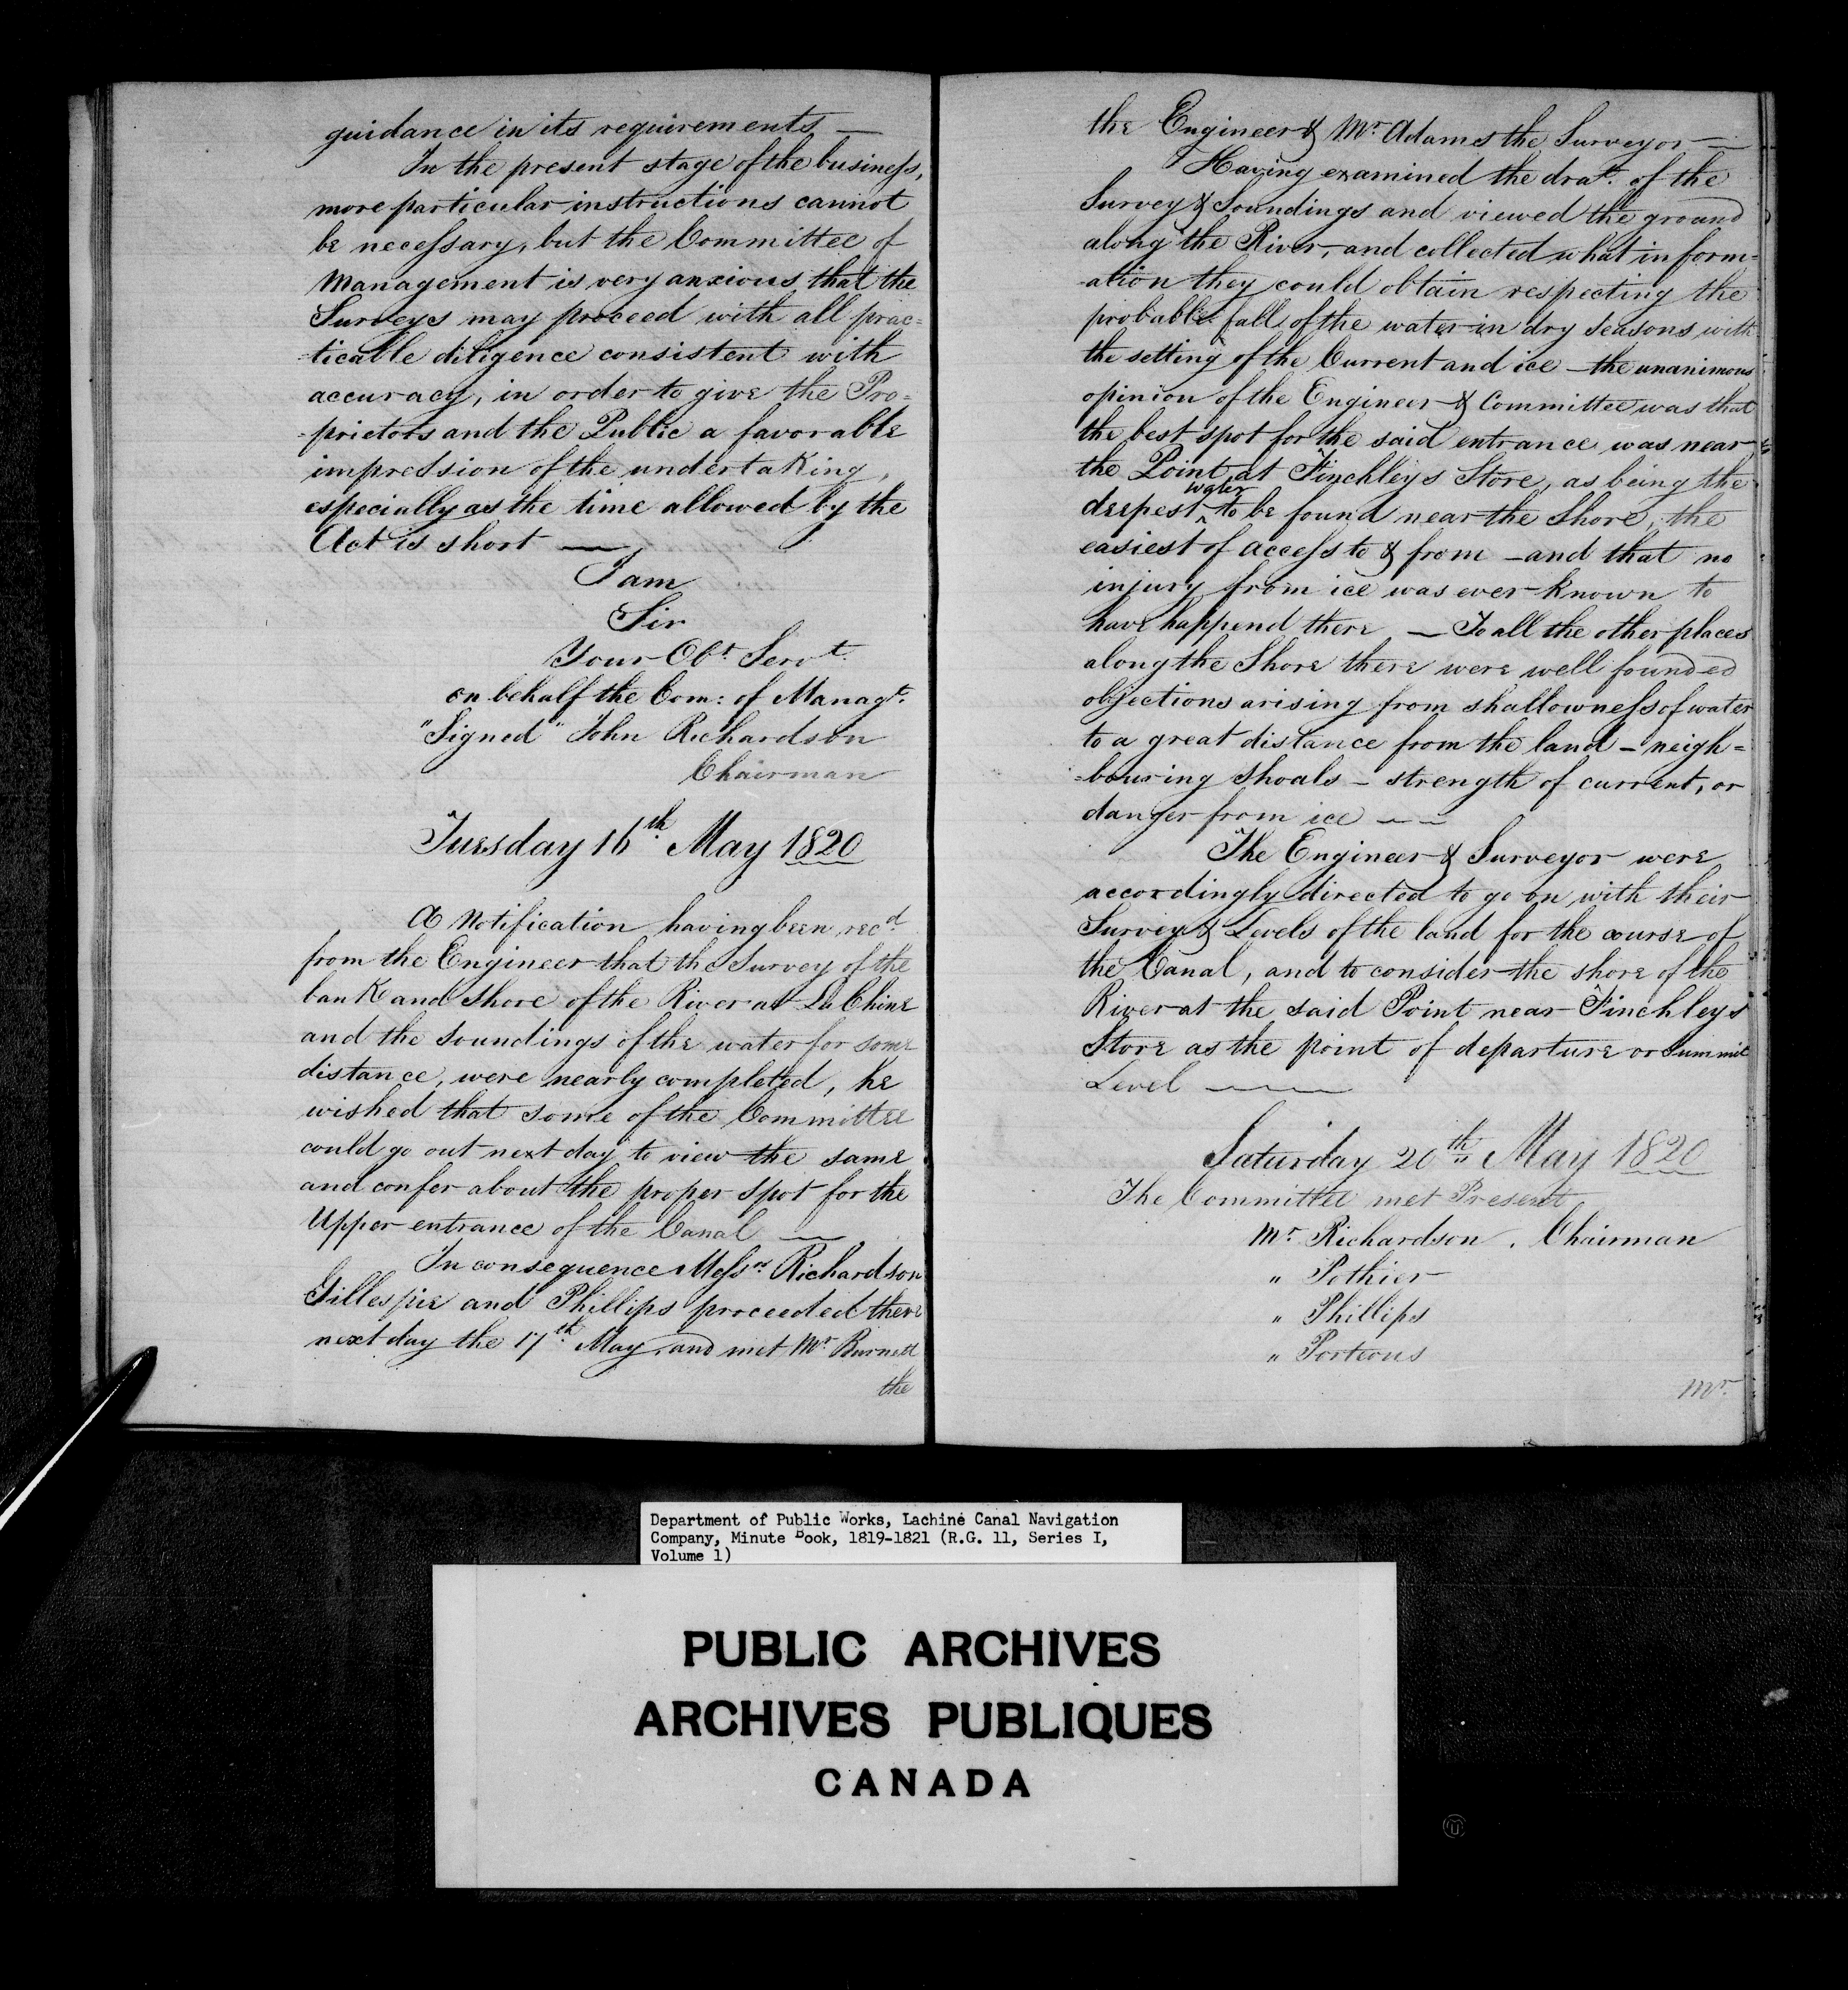 guidance in its requirements —
In the present stage of the business,
more particular instructions cannot
be necessary, but the Committee of
Management is very anxious that the
Surveys may proceed with all prac=
=ticable diligence consistent with
accuracy, in order to give the Pro=
=prietors and the Public a favorable
impression of the undertaking,
especially as the time allowed by the
Act is short —
I am
Sir
Your Obt. Servt.
on behalf the Com: of Managt.
"Signed" John Richardson
Chairman
Tuesday 16th May 1820
A Notification having been recd.
from the Engineer that the Survey of the
bank and Shore of the River at La Chine
and the soundings of the water for some
distance, were nearly completed, he
wished that some of the Committee
could go out next day to view the same
and confer about the proper spot for the
Upper entrance of the Canal —
In consequence Messrs Richardson
Gillespie and Phillips proceeded there
next day the 17th May, and met Mr. Burnett
the
the Engineer & Mr. Adams the Surveyor —
Having examined the drat. of the
Survey & Soundings and viewed the ground
along the River, and collected what inform=
=ation they could obtain respecting the
probable fall of the water in dry seasons with
the setting of the Current and ice — the unanimous
opinion of the Engineer & Committee was that
the best spot for the said entrance was near
the Point at Finchleys Store, as being the
deepest ^water to be found near the Shore, the
easiest of access to & from — and that no
injury from ice was ever known to
have happend there — To all the other places
along the Shore there were well founded
objections arising from shallowness of water
to a great distance from the land — neigh=
=bouring shoals — strength of current, or
danger from ice — —
The Engineer & Surveyor were
accordingly directed to go on with their
Survey & Levels of the land for the course of
the Canal, and to consider the shore of the
River at the said Point near Finchleys
Store as the point of departure or Summit
Level —
Saturday 20th May 1820
The Committee met Present
Mr. Richardson, Chairman
" Pothier
" Phillips
" Porteous
Mr.
Department of Public Works, Lachine Canal Navigation
Company, Minute Book, 1819-1821 (R.G. 11, Series I,
Volume 1)
PUBLIC ARCHIVES
ARCHIVES PUBLIQUES
CANADA